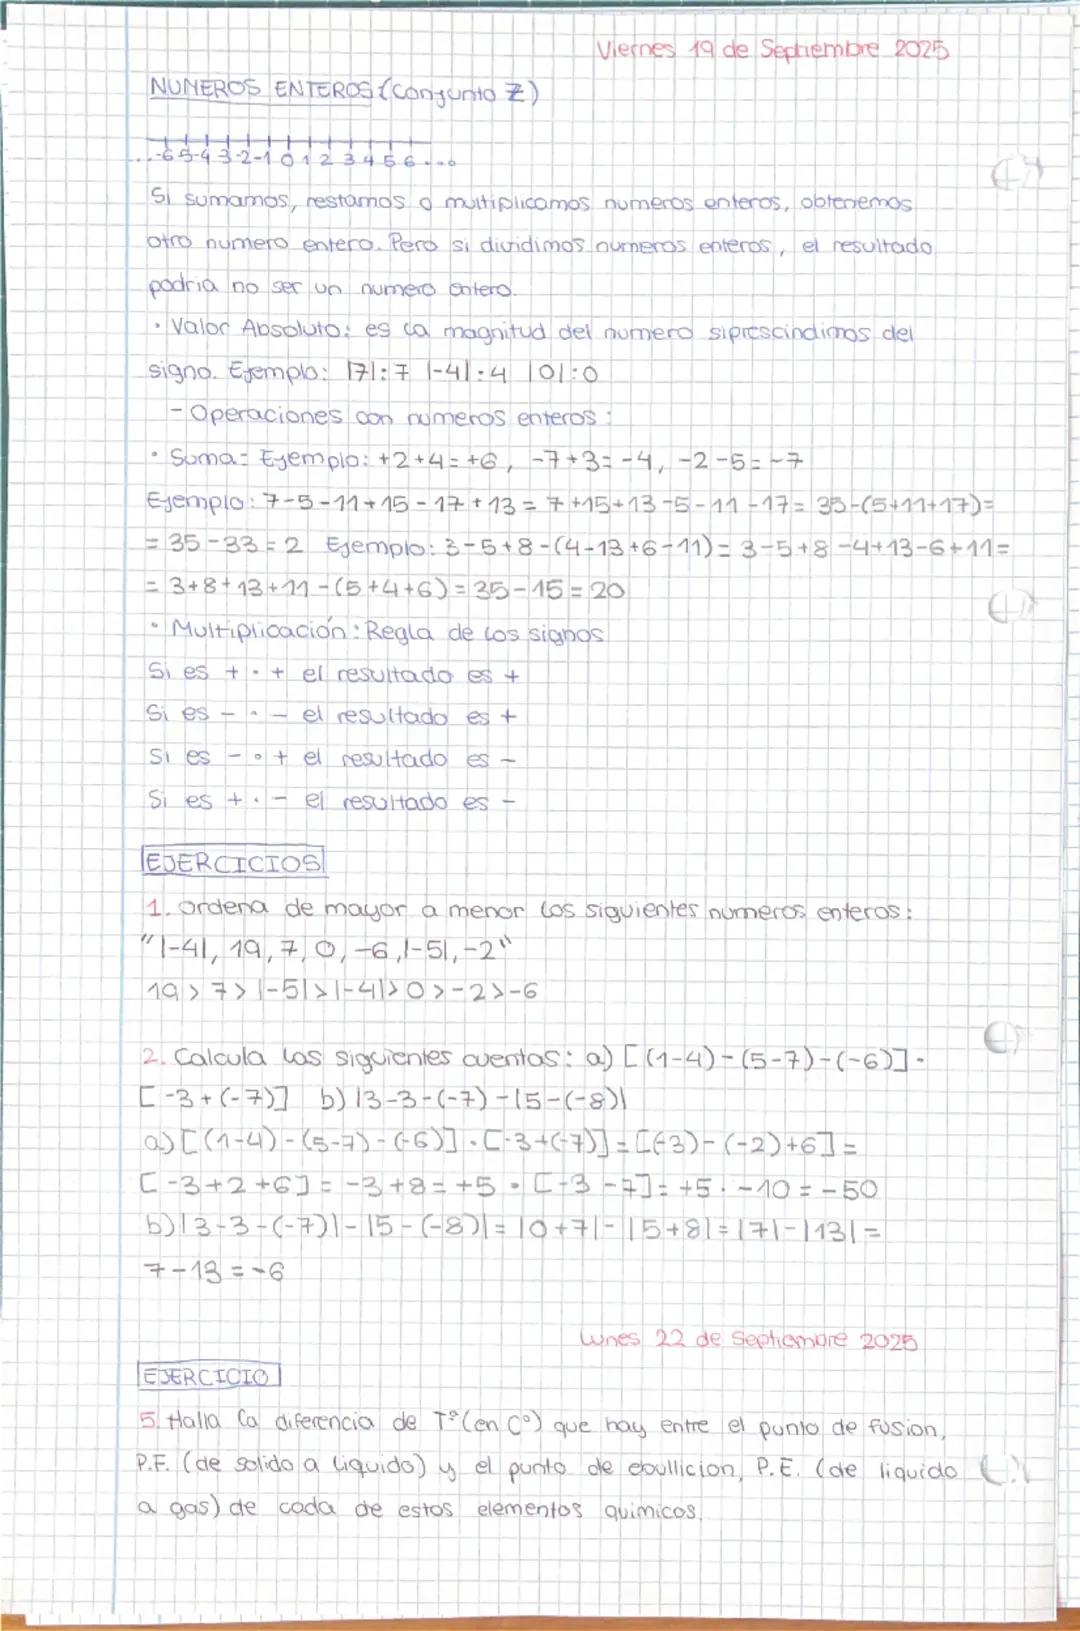 Viernes 19 de Septiembre 2025
NUMEROS ENTEROS (Conjunto Z)
...-6 5-4 3-2-1 0 1 2 3 4 5 6 ...
Si sumamos, restamos o multiplicamos numeros enteros, obtenemos
otro numero entero. Pero si dividimos numeros enteros, el resultado
podria no ser un numero entero.
· Valor Absoluto: es la magnitud del numero siprescindimos del
signo. Ejemplo: |7|:7 |-4|:4 |0|:0
- Operaciones con numeros enteros:
· Suma= Ejemplo: +2+4=+6, -7+3=-4, -2-5=-7
Ejemplo: 7-5-11+15-17+13=7+15+13-5-11-17=35-(5+11+17)=
=35-33=2 Ejemplo: 3-5+8-(4-13+6-11)=3-5+8-4+13-6+11=
=3+8+13+11-(5+4+6)=35-15=20
· Multiplicación: Regla de los signos
Si es + · + el resultado es +
Si es - · - el resultado es +
Si es - · + el resultado es -
Si es + · - el resultado es -
EJERCICIOS
1. Ordena de mayor a menor los siguientes numeros enteros:
"|-4|, 19, 7, 0, -6, |-5|, -2"
19 > 7 > |-5| > |-4| > 0 > -2 > -6
2. Calcula las siguientes cuentas: a) [(1-4)-(5-7)-(-6)]·
[-3+(-7)] b) |3-3-(-7)-|5-(-8)|
a) [(1-4)-(5-7)-(-6)]·[-3+(-7)]=[(-3)-(-2)+6]=
[-3+2+6]=-3+8=+5 · [-3-7]=+5·-10=-50
b) |3-3-(-7)|-|5-(-8)|=|0+7|-|5+8|=|7|-|13|=
7-13=-6
Lunes 22 de Septiembre 2025
EJERCICIO
5. Halla la diferencia de Tº (en Cº) que hay entre el punto de fusion,
P.F. (de solido a liquido) y el punto de ebullicion, P.E. (de liquido
a gas) de cada de estos elementos quimicos.